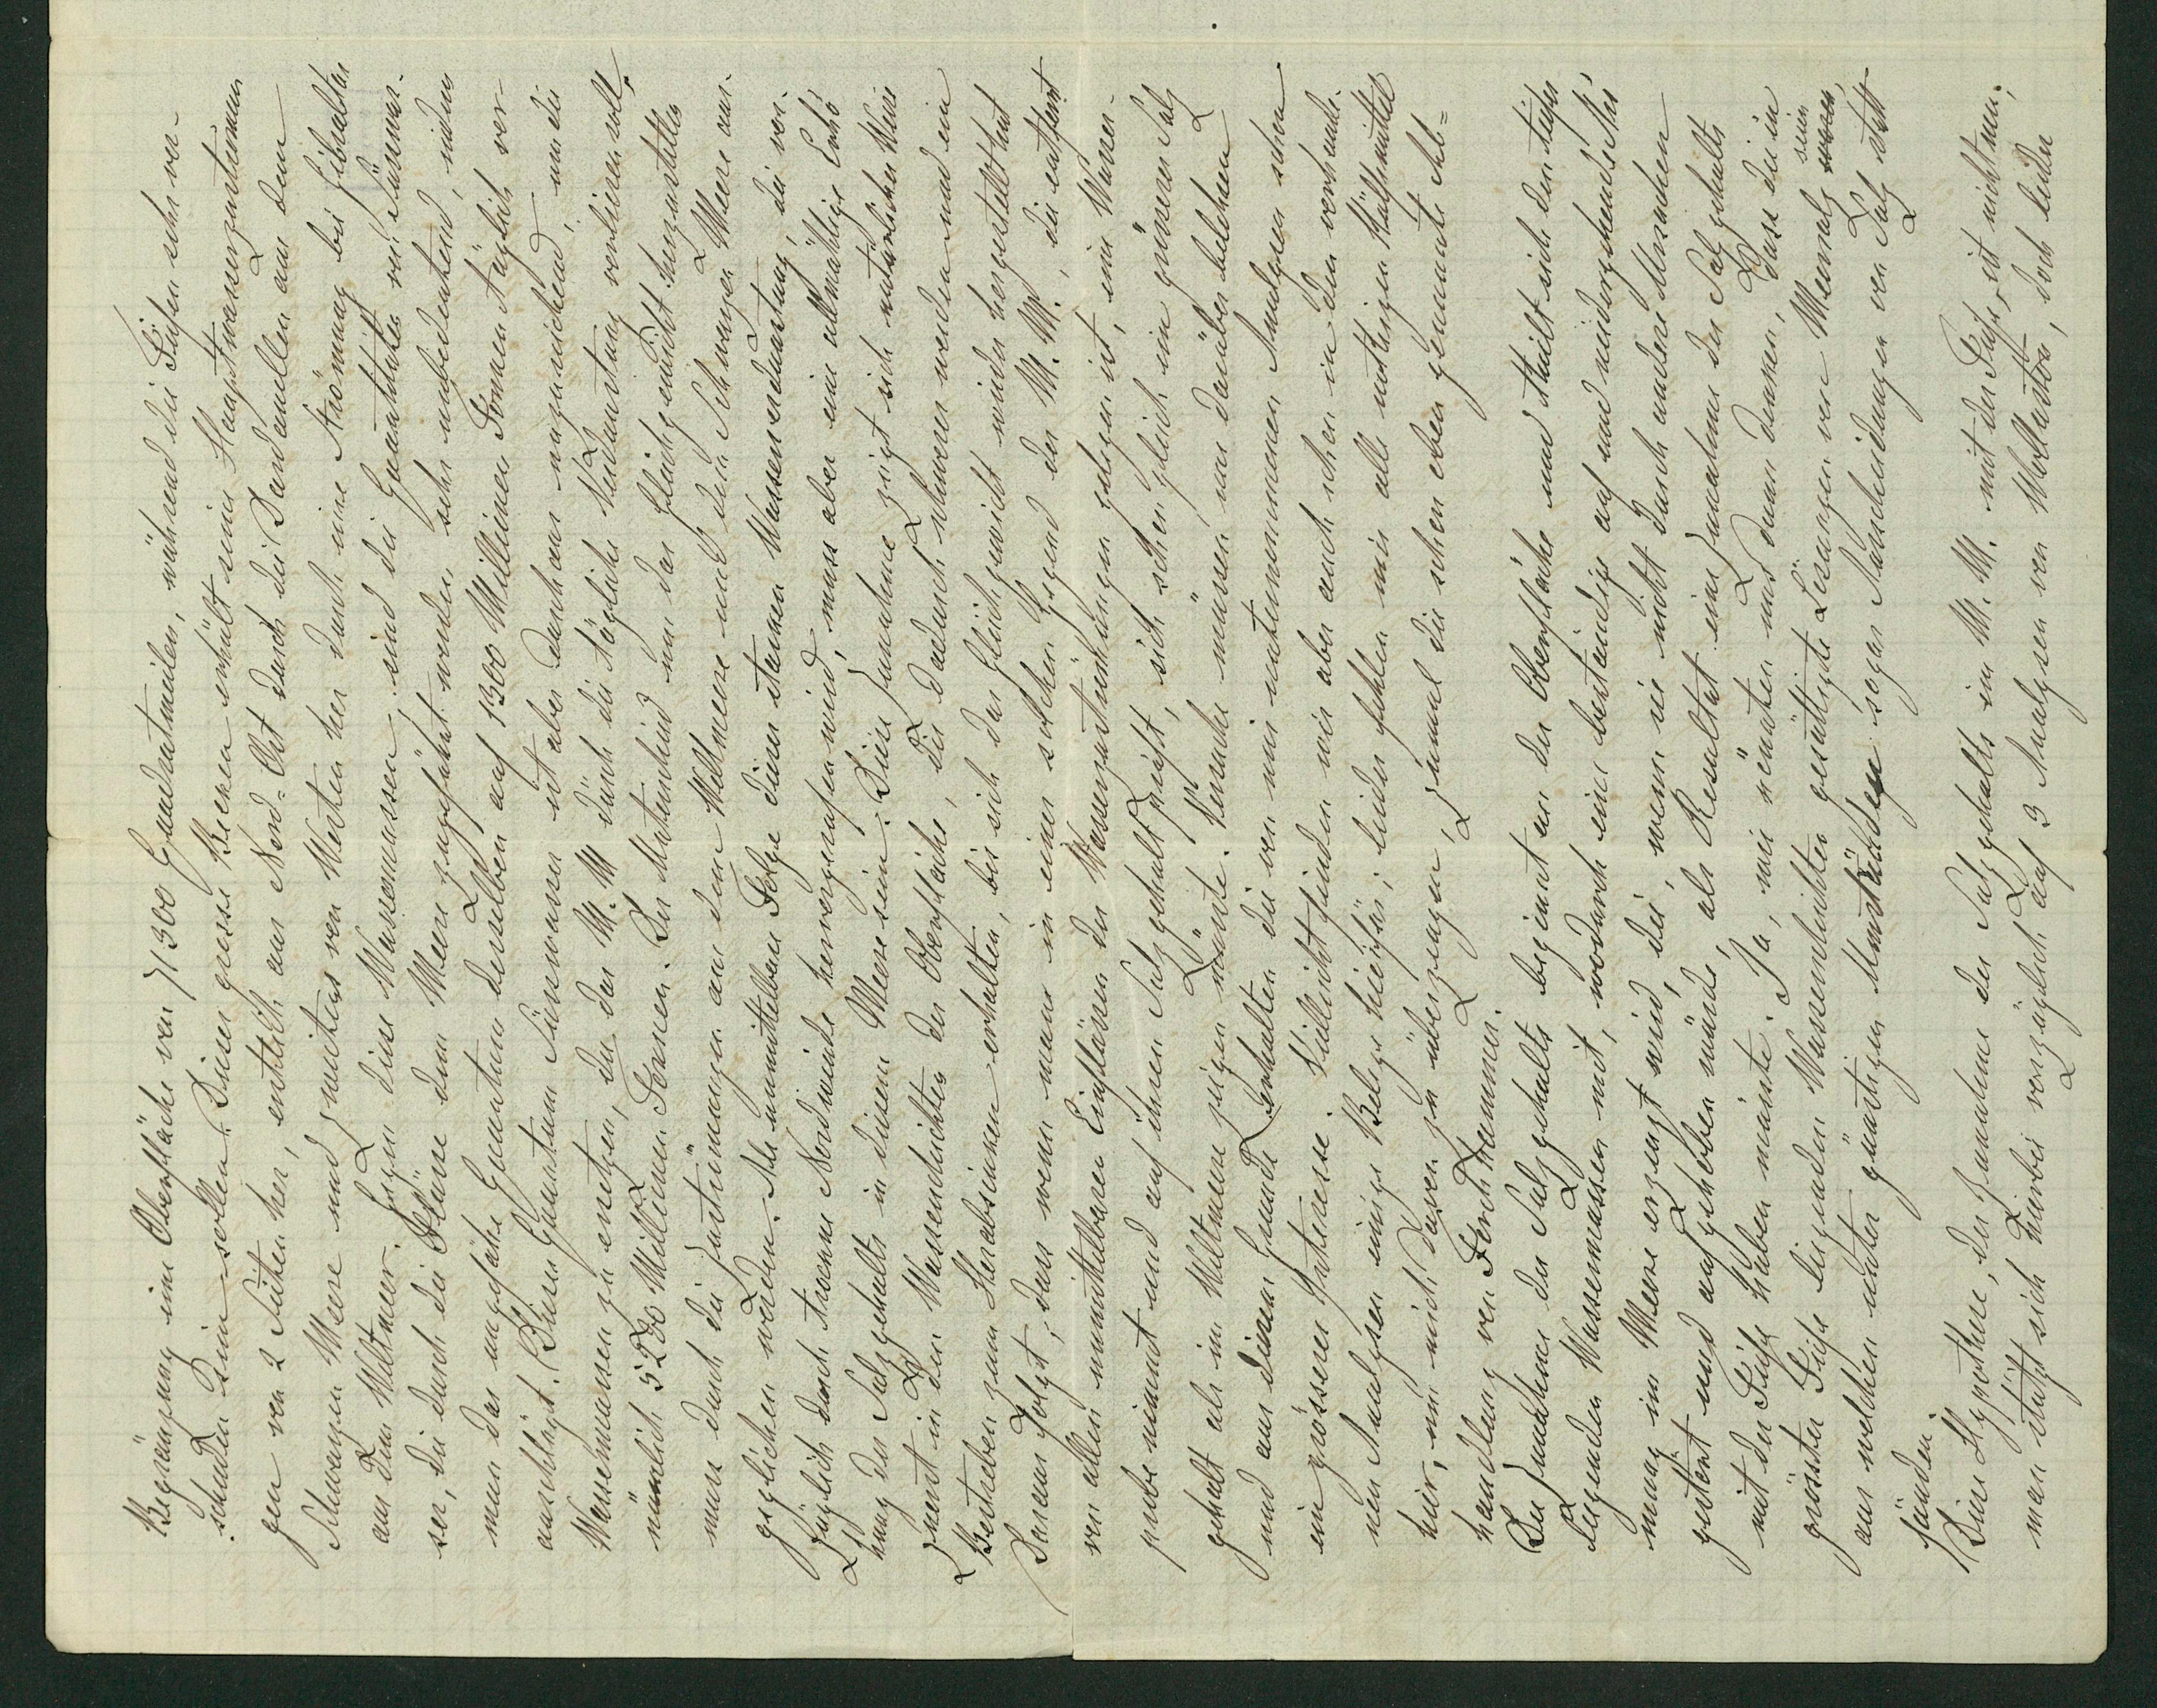 Begränzung eine Oberfläche von 71300 Quadratmeilen, während die Tiefen sehr ver-
schieden sein sollen. Dieses grosse Becken erhält seine Hauptwasserzuströmun
gen von 2 Seiten her, entlich aus Nord-Ost durch die Dardanellen aus dem
Schwarzen Meere und zweitens von Westen her durch eine Strömung bei Gibraltar
aus dem Weltmeer. Gegen diese Wassermassen, sind die Quantitäten von Süsswas-
ser, die durch die Flüsse dem Meere zugeführt werden sehr unbedeutend, indem
man das ungefähre Quantum derselben auf 1300 Millionen Tonnen täglich ver-
anschlägt. Dieses Quantum Süsswasser ist aber durchaus unzureichend, um die
Wassermassen zu ersetzen, die das M. M durch die tägliche Verdunstung verlieren soll,
nämlich 5280 Millionen Tonnen. Der Unterschied um das Gleichgewicht herzustellen
muss durch die Zuströmungen aus dem Weltmeere und dem Schwarzen Meere aus-
geglichen werden. Als unmittelbare Folge dieser starken Wasserverdunstung, die vor-
züglich durch trockene Nordwinde hervorgerufen wird, muss aber eine allmählige Erhö
hung des Salzgehalts in diesem Meere sein. Diese Zunahme zeigt sich natürlicher Weise
zuerst in den Wasserschichten der Oberfläche, die dadurch schwerer werden und ein
Bestreben zum Herabsinken erhalten, bis sich das Gleichgewicht wieder hergestellt hat
Daraus folgt, dass wenn man in einer solchen Gegend des M. M., die entfernt
von allen unmittelbaren Einflüssen der Wasserzuströhungen gelegen ist, eine Wasser-
probe nimmt und auf ihren Salzgehalt prüft, sich schon gleich ein grösserer Salz
gehalt als im Weltmeere zeigen müsste. Versuche müssen uns darüber belehren
und aus diesem Grunde erhalten die von mir unternommenen Analysen schon
ein grösseres Interesse. Vielleicht finden wir aber auch schon in den vorhande-
nen Analysen einige Belege hierfür; leider fehlen mir alle nöthigen Hülfsmittel
hier, um mich davon zu überzeugen, zumal die schon oben genannte Ab=
handlung von Forchhammer.
Die Zunahme des Salzgehalts beginnt an der Oberfläche und theilt sich den tiefer
liegenden Wassermassen mit, wodurch eine beständige auf und niedergehende Strö
mung im Meere erzeugt wird, die, wenn sie nicht durch andere Ursachen
gestört und aufgehoben würde, als Resultat eine Zunahme des Salzgehalts
mit der Tiefe haben müsste. Ja, wir könnten uns dann denken, dass die in
grösster Tiefe liegenden Wasserschichten gesättigte Lösungen von Meersalz seien,
aus welchen unter günstigen Umständen sogar Ausscheidungen von Salz statt
fänden.
Diese Hypothese, der Zunahme des Salzgehalts im M. M. mit der Tiefe, ist nicht neu;
man stützt sich hierbei vorzüglich auf 3 Analysen von Wollaston, doch leider